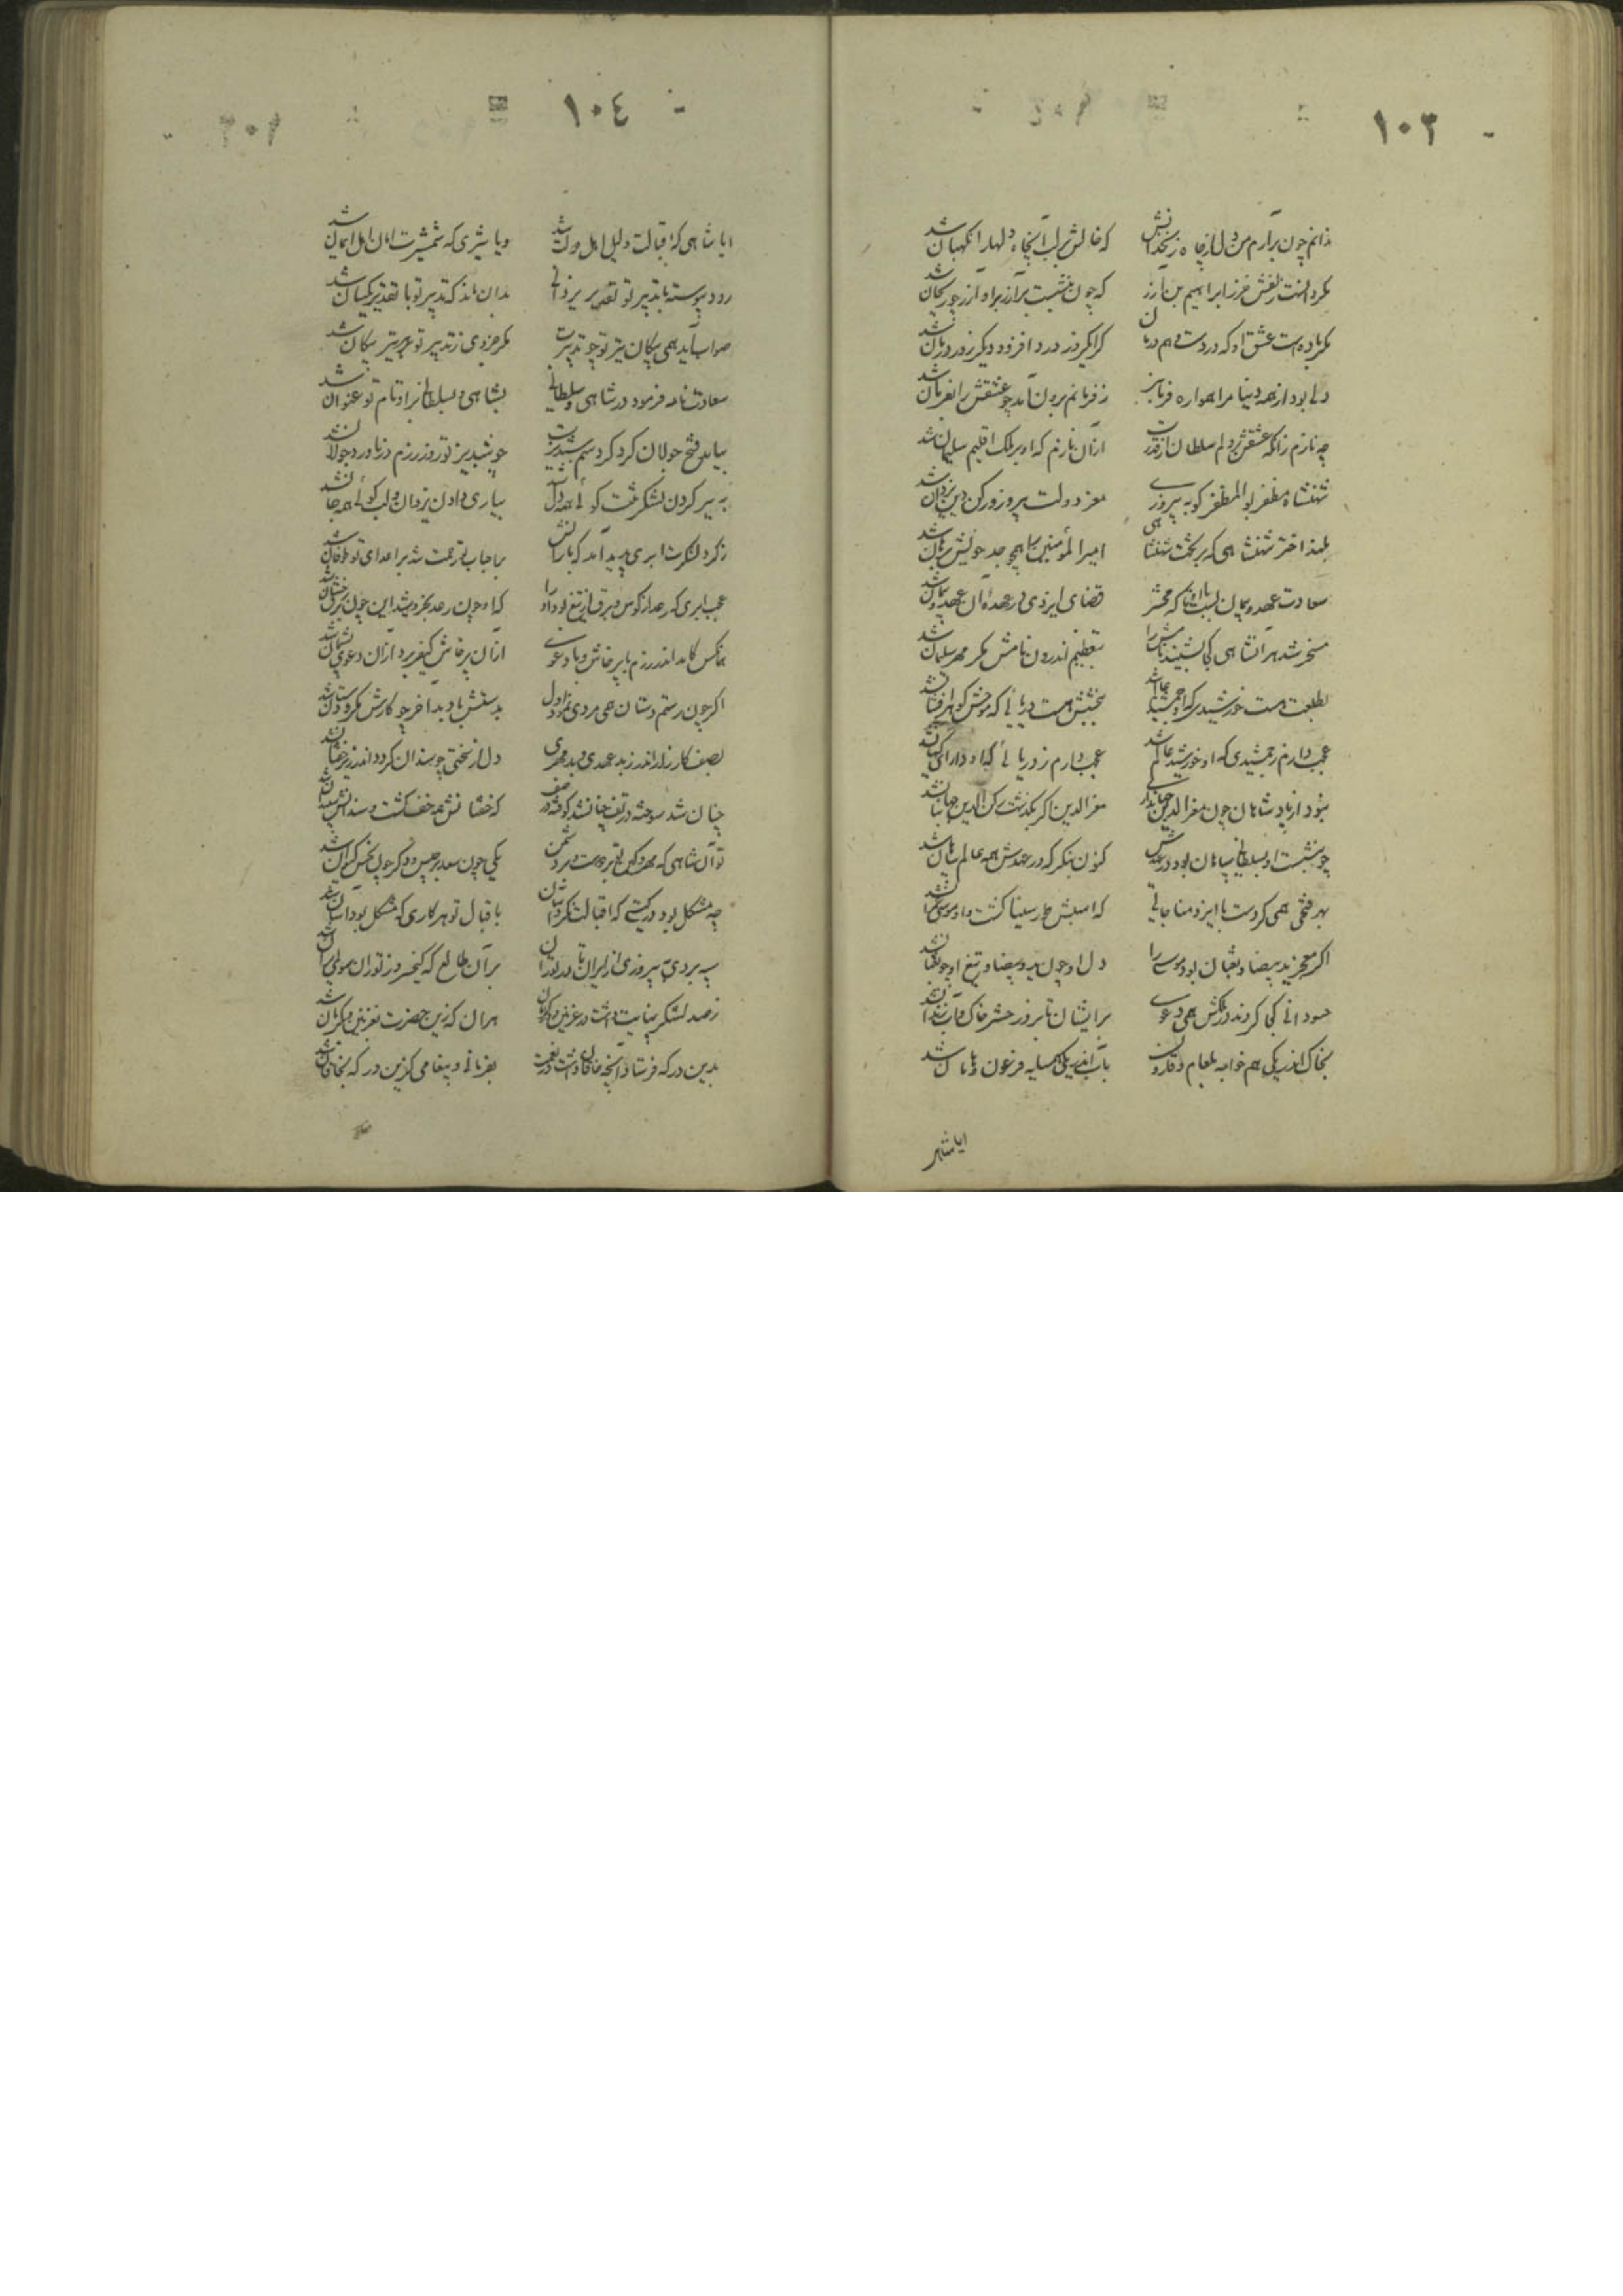 ١٠٣
ندانم چون برآرم من دل از چاه زنخدانش که خالش بر لب آن چاه دلها را نگهبان شد
مگر دانست زلفش خرز ابراهیم بن آزر که چون بنشست بر آزر بر او آزر چو ریحان شد
مگر باده است عشق او که دردست و هم درمان کز امروز درد افزود و دیگر روز درمان شد
دلی بود از همه دنیا مرا همواره فرمانبر ز فرمانم برون آمد چو عشقش را بفرمان شد
چه نازم زانکه عشقش بر دلم سلطان از قدرت ازان نازم که او بر ملک اقلیم سلیمان شد
شهنشاه مظفر بوالمظفر کو به پیروزی معز دولت پیروز و رکن دین یزدان شد
بلند اختر شهنشاهی که بر تخت شهنشاهی امیر المؤمنین را همچو جد خویش برهان شد
سعادت عهد و پیمان بست با او تا که محشر قضای ایزدی در عهده آن عهد و پیمان شد
مسخر شد هر آنشاهی کجا بشنید نامش را بتعظیم اندرون نامش مگر مهر سلیمان شد
بطلعت هست خورشیدی که او جمشید عالم شد ببخشش هست دریائی که موجش گوهر افشان شد
عجب دارم ز جمشیدی که او خورشید عالم شد عجب دارم ز دریائی که او دارای گیهان شد
نبود از پادشاهان چون معز الدین جهانداری معز الدین اگر بگذشت رکن الدین جهانبان شد
چو بنشست او بسلطانی سپاهان بود در عهدش کنون بنگر که در عهدش همه عالم سپاهان شد
بهر فتحی همی کردست با ایزد مناجاتی که اسبش طور سینا گشت و او موسی عمران شد
اگر معجز ید بیضا و ثعبان بود موسی را دل او چون ید بیضا و تیغ او چو ثعبان شد
حسودانی کجا کردند در ملکش همی دعوی بر ایشان تا بروز حشر خاک و آب زندان شد
بخاک اندر یکی همخوابه بلعام و قارون شد بآب اندر یکی همسایه فرعون و هامان شد
ایا شهر
١٠٤
ایا شاهی که اقبالت دلیل اهل دولت شد و یا شیری که شمشیرت امان اهل ایمان شد
رود پیوسته با تدبیر تو تقدیر یزدانی بدان ماند که تدبیر تو با تقدیر یکسان شد
صواب آید همی پیکان تیر تو چو تدبیرت مگر جزوی ز تدبیر تو بر هر تیر پیکان شد
سعادت نامه فرمود در شاهی و سلطانی بشاهی و بسلطانی بر او نام تو عنوان شد
بیامد فتح جولان کرد گرد سم شبدیزت چو شبدیز تو روز رزم در ناورد جولان شد
به سیر کردن لشکر تنت گوئی همه دل شد بیاری دادن یزدان دلت گوئی همه جان شد
ز گرد لشکرت ابری پدید آمد که بارانش بر احباب تو رحمت شد بر اعدای تو طوفان شد
عجب ابری که رعد از کوس و برق از تیغ بود او را که او چون رعد بخروشید این چون برق رخشان شد
هر آنکس کامد اندر رزم با پرخاش و با دعوی ازان پرخاش کیفر برد ازان دعوی پشیمان شد
اگر چون رستم دستان همی مردی نمود اول بدستش باد بد آخر چو کارش مکر و دستان شد
بصف کارزار اندر ز بدعهدی و بدمهری دل از سختی چو سندان کرد و اندر زیر خفتان شد
چنان شد سوخته در تف چنان شد کوفته در صف که خفتانش همه خف گشت و سندانش سپندان شد
تو آن شاهی که مهر و کین تو بر دوست و بر دشمن یکی چون سعد برجیس و دگر چون نحس کیوان شد
چه مشکل بود در گیتی که اقبالت نکرد آسان باقبال تو هر کاری که مشکل بود آسان شد
سپه بردی به پیروزی از ایران تا در توران بر آن طالع که کیخسرو ز توران سوی ایران شد
ز صد لشکر پناهیت داشت در غزنین و کرمان هر آن کو زین حضرت بغزنین و بکرمان شد
بدین درگه فرستاد آنچه خاقان داشت در نعمت بفرمانی و پیغامی کزین درگه بخاقان شد